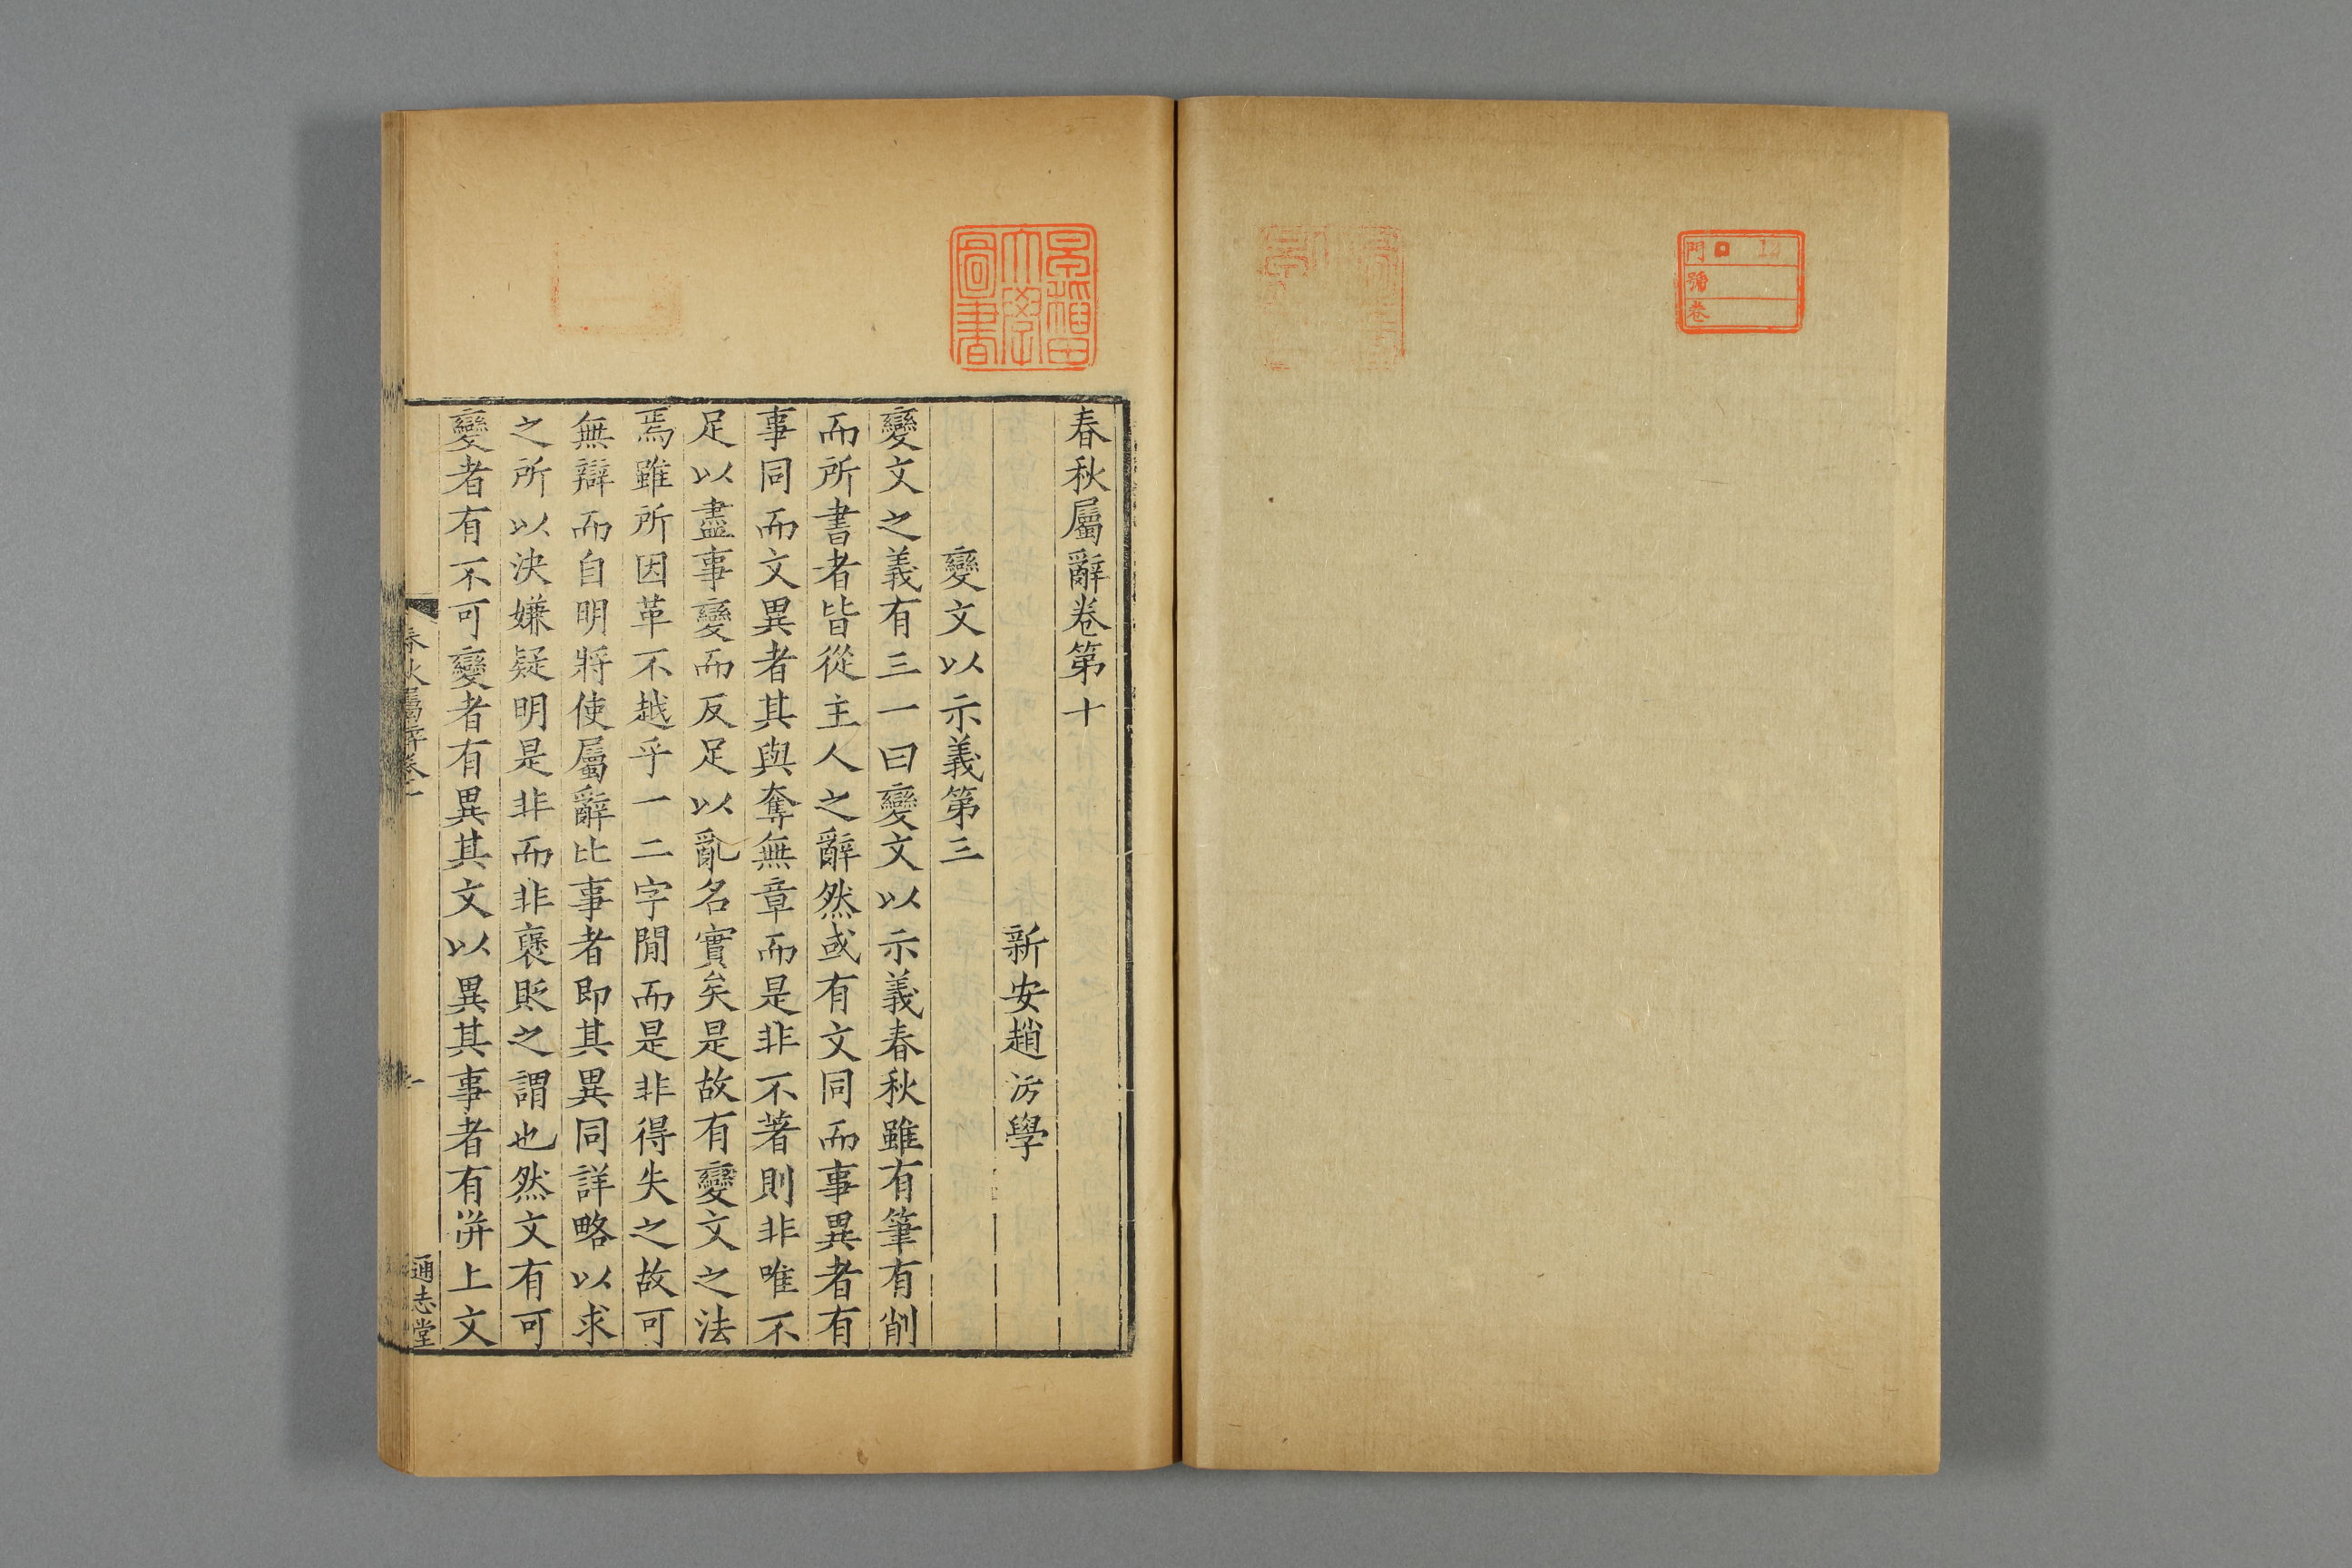 門
號
卷
早稲田
大學
圖書
春秋屬辭卷第十
新安趙汸學
變文以示義第三
變文之義有三一曰變文以示義春秋雖有筆有削
而所書者皆從主人之辭然或有文同而事異者有
事同而文異者其與奪無章而是非不著則非唯不
足以盡事變而反足以亂名實矣是故有變文之法
焉雖所因革不越乎一二字閒而是非得失之故可
無辯而自明將使屬辭比事者即其異同詳略以求
之所以決嫌疑明是非而非襃貶之謂也然文有可
變者有不可變者有異其文以異其事者有洴上文
春秋屬辭卷十
一
通志堂